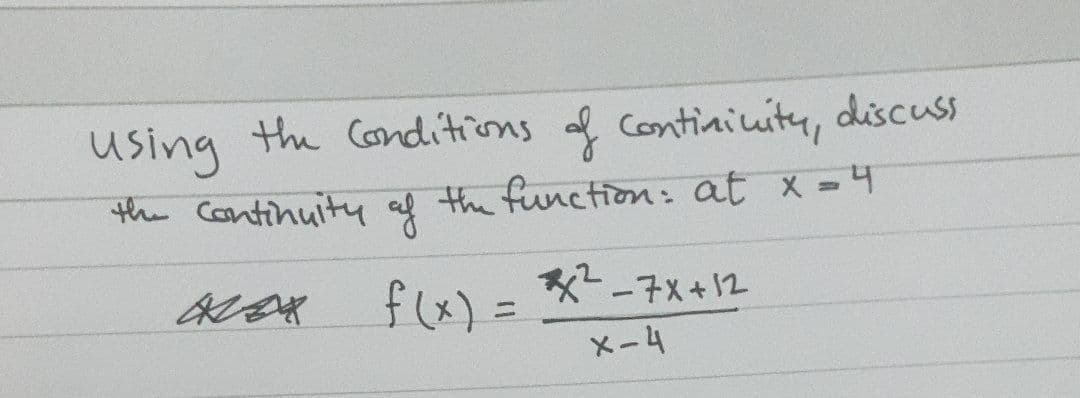 using the Conditions of Continiuity, discuss
the Continuity of the function: at x = 4
f(x) = x² - 7x + 12 / x - 4